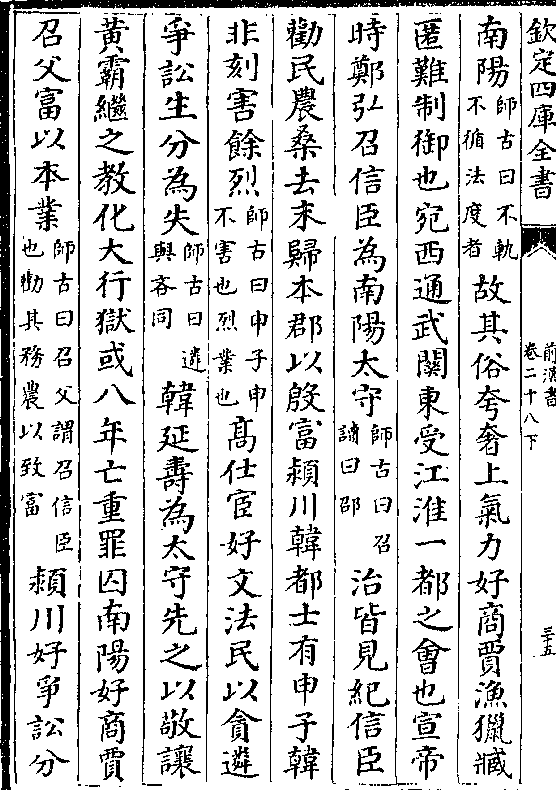 欽定四庫全書
前漢書
卷二十八下
三十五
南陽師古曰不軌不循法度者故其俗夸奢上氣力好商賈漁獵臧
匿難制御也宛西通武關東受江淮一都之會也宣帝
時鄭弘召信臣為南陽太守師古曰召讀曰邵治皆見紀信臣
勸民農桑去末歸本郡以殷富潁川韓都士有申子韓
非刻害餘烈師古曰申子申不害也烈業也高仕宦好文法民以貪遴
爭訟生分為失師古曰遴與吝同韓延壽為太守先之以敬讓
黃霸繼之教化大行獄或八年亡重罪囚南陽好商賈
召父富以本業師古曰召父謂召信臣也勸其務農以致富潁川好爭訟分